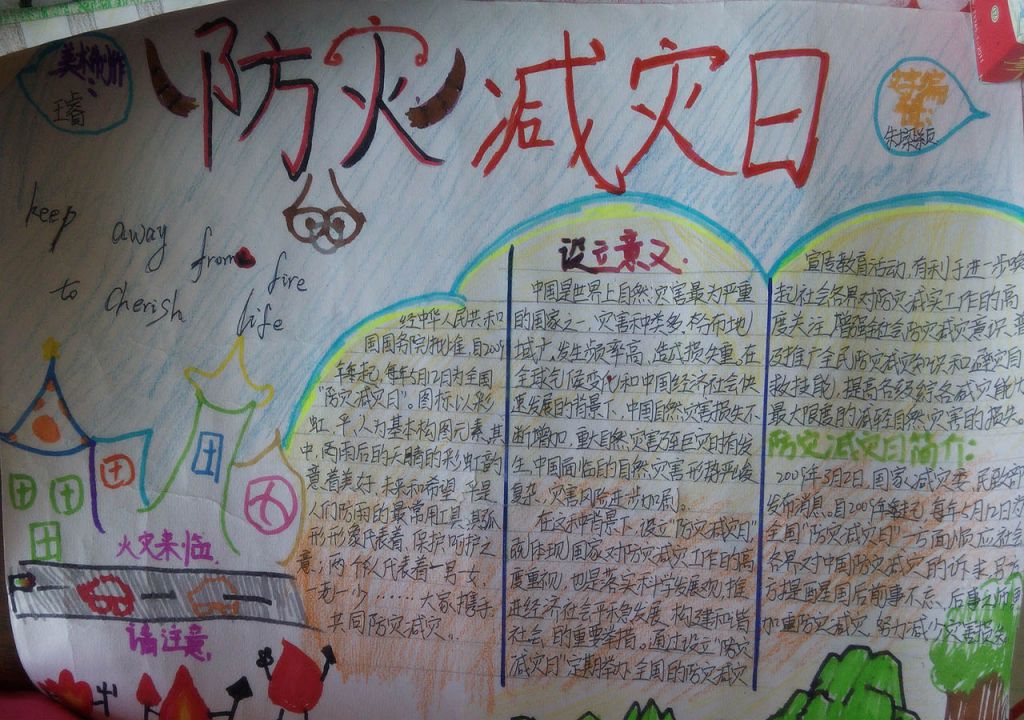 美术制作：
王睿
防灾减灾日
keep away from fire
to cherish life
经中华人民共和
国国务院批准,自2009
年起,每年5月12为全国
“防灾减灾日”。图标以彩
虹、伞、人为基本构图元素。其
中,雨后的天晴的彩虹韵
意着美好、未来和希望,伞是
人们防雨的最常用工具,其弧
形形象代表着,保护、呵护之
意,两个人代表着一男一女,
一老一少……大家携手,
共同防灾减灾。
设立意义.
中国是世界上自然灾害最为严重
的国家之一,灾害种类多,分布地
域广,发生频率高,造成损失重,在
全球气候变化和中国经济社会快
速发展的背景下,中国自然灾害损失不
断增加,重大自然灾害乃至巨灾时有发
生,中国面临的自然灾害形势严峻
复杂,灾害风险进步加剧。
在这种背景下,设立“防灾减灾日”,
既体现国家对防灾减灾工作的高
度重视,也是落实科学发展观,推
进经济社会平稳发展,构建和谐
社会的重要举措。通过设立“防灾
减灾日”定期举办全国的防灾减灾
宣传教育活动,有利于进一步唤
起社会各界对防灾减灾工作的高
度关注,增强社会防灾减灾意识,普
及推广全民防灾减灾知识和避灾自
救技能,提高各级综合减灾能力
最大限度的减轻自然灾害的损失。
防灾减灾日简介:
国家减灾委、民政部
发布消息。自2009年起,每年5月12日为
全国“防灾减灾日”一方面顺应社会
各界对中国防灾减灾的诉求,另一
方提醒国后前事不忘、后事之师,
加重防灾减灾,努力减少灾害损失。
火灾来临,
请注意,